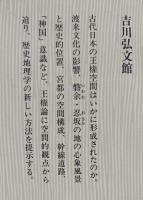 吉川弘文館
古代日本の王権空間はいかに形成されたのか。
渡来文化の影響、磐余・忍坂の地の心象風景
と歴史的位置、宮都の空間構成、幹線道路、
「神国」意識などを、王権論に空間的観点から
迫り、歴史地理学の新しい方法を提示する。